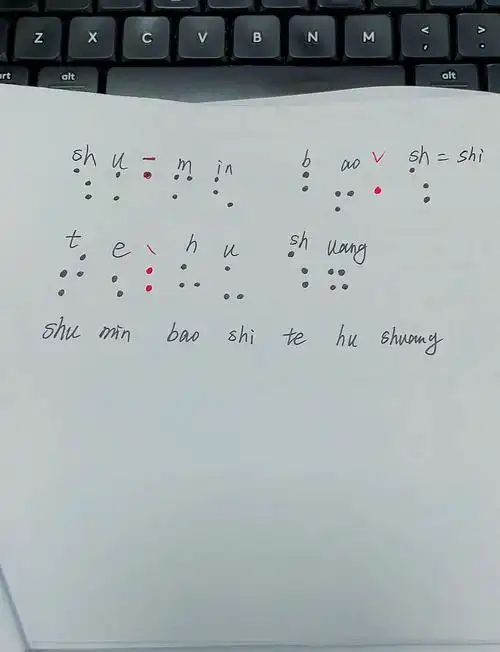 Z X C V B N M < , > .
alt alt
sh u - m in b ao v sh = shi
t e \ h u sh uang
shu min bao shi te hu shuang